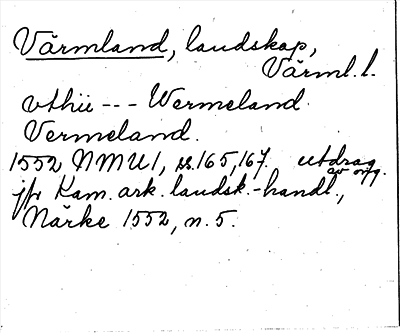 Värmland, landskap,
Värml. l.
vthii --- Wermeland.
Vermeland.
1552 NMU1, s. 165, 167. utdrag av orig.
jfr Kam. ark. landsk.-handl.,
Närke 1552, n. 5.